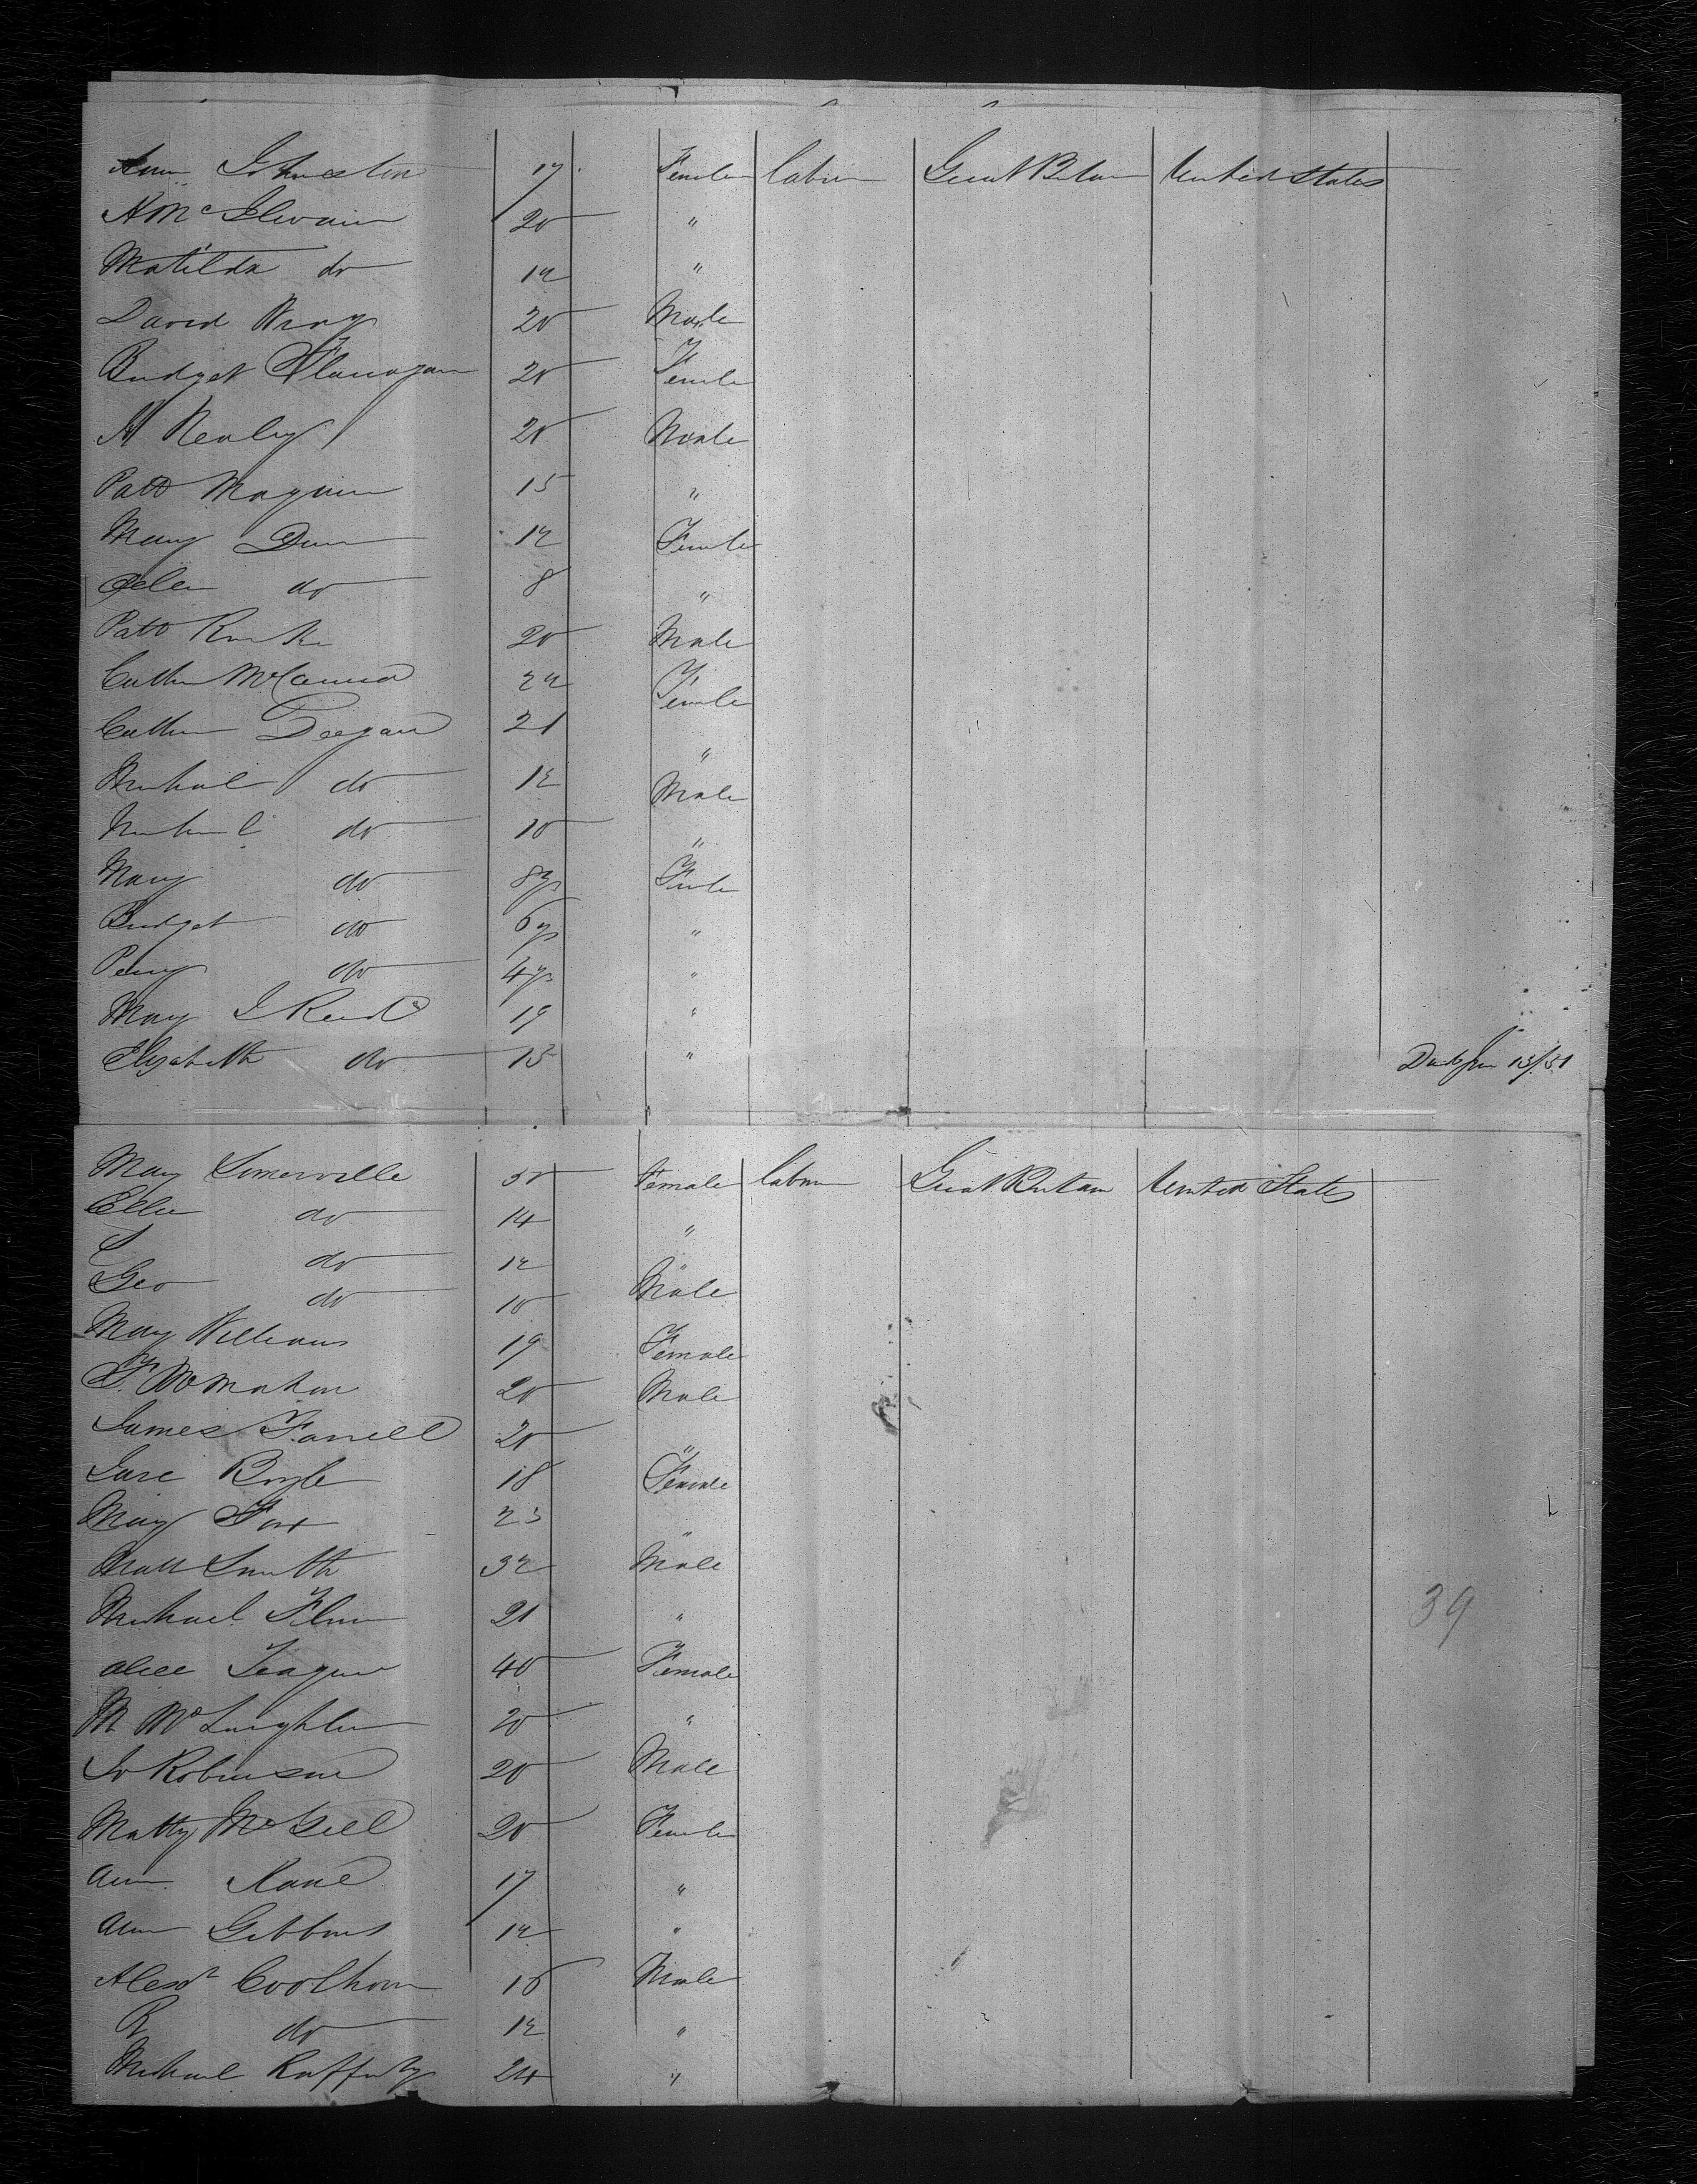 Ann Johnston 17 Female labor Great Britain United States
A McIlwain 20 "
Matilda do 12 "
David Wray 20 Male
Bridget Flanagan 20 Female
H Nealey 20 Male
Patt Maguire 15 "
Mary Dunn 12 Female
Ellen do 8 "
Patt Rourke 20 Male
Cathn McCanna 22 Female
Cathn Deegan 21 "
Michael do 12 Male
do 10 "
Mary do 8 ys Female
Bridget do 6 ys "
Peny do 4 ys "
Mary J Reid 19 "
Elizabeth do 15 " Died Jan 13/51
Mary Somerville 30 Female labor Great Britain United States
Ellen do 14 "
S do 12 "
Geo do 10 Male
Mary Williams 19 Female
F. McMahon 20 Male
James Farrell 20 "
Jane Boyle 18 Female
Mary Fox 23 "
Matt Smith 32 Male
Michael Flinn 21 "
39
Alice Teague 40 Female
M McLaughlin 20 "
Jo Robinson 20 Male
Matty McGill 20 Female
Ann Kane 17 "
Ann Gibbons 12 "
Alexr Coolhoun 16 Male
R do 12 "
Michael Rafferty 24 "